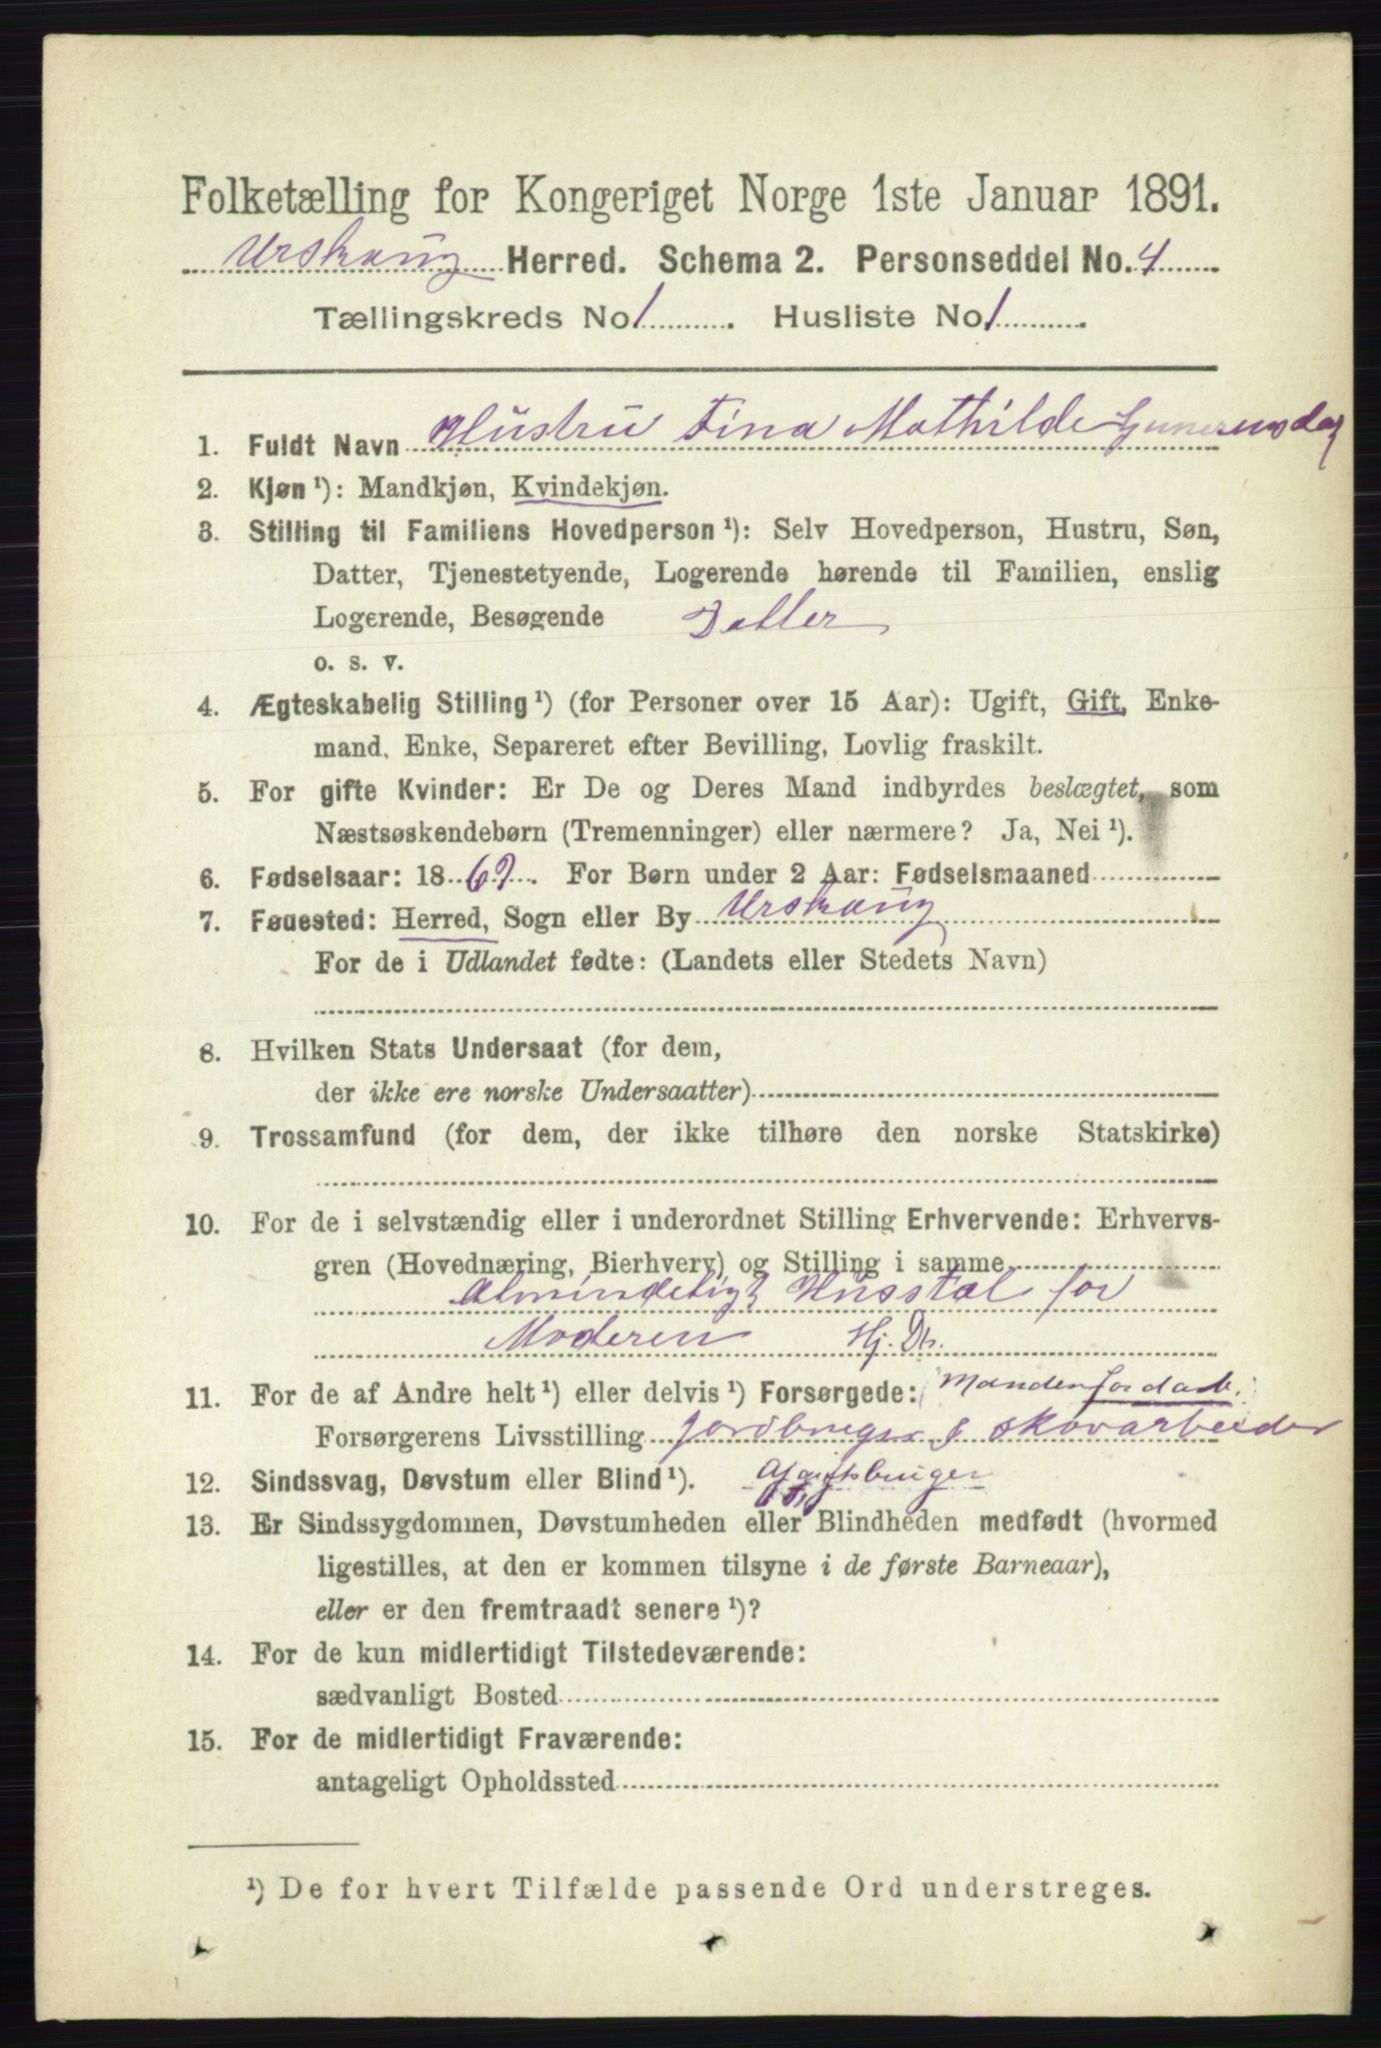 Folketælling for Kongeriget Norge 1ste Januar 1891.
Urskoug Herred. Schema 2. Personseddel No. 4
Tællingskreds No 1. Husliste No 1.
1. Fuldt Navn Hustru Tina Mathilde
2. Kjøn¹): Mandkjøn, Kvindekjøn.
3. Stilling til Familiens Hovedperson¹): Selv Hovedperson, Hustru, Søn,
Datter, Tjenestetyende, Logerende hørende til Familien, enslig
Logerende, Besøgende Datter
o. s. v.
4. Ægteskabelig Stilling¹) (for Personer over 15 Aar): Ugift, Gift, Enke-
mand, Enke, Separeret efter Bevilling, Lovlig fraskilt.
5. For gifte Kvinder: Er De og Deres Mand indbyrdes beslægtet, som
Næstsøskendebørn (Tremenninger) eller nærmere? Ja, Nei¹).
6. Fødselsaar: 1869. For Børn under 2 Aar: Fødselsmaaned
7. Fødested: Herred, Sogn eller By Urskoug
For de i Udlandet fødte: (Landets eller Stedets Navn)
8. Hvilken Stats Undersaat (for dem,
der ikke ere norske Undersaatter)
9. Trossamfund (for dem, der ikke tilhøre den norske Statskirke)
10. For de i selvstændig eller i underordnet Stilling Erhvervende: Erhvervs-
gren (Hovednæring, Bierhverv) og Stilling i samme
Almindeligt Husstel for
Moderen Hj. Dtr.
11. For de af Andre helt¹) eller delvis¹) Forsørgede: Manden
Forsørgerens Livsstilling Jordbruger & skovarbeider
12. Sindssvag, Døvstum eller Blind¹).
13. Er Sindssygdommen, Døvstumheden eller Blindheden medfødt (hvormed
ligestilles, at den er kommen tilsyne i de første Barneaar),
eller er den fremtraadt senere¹)?
14. For de kun midlertidigt Tilstedeværende:
sædvanligt Bosted
15. For de midlertidigt Fraværende:
antageligt Opholdssted
¹) De for hvert Tilfælde passende Ord understreges.